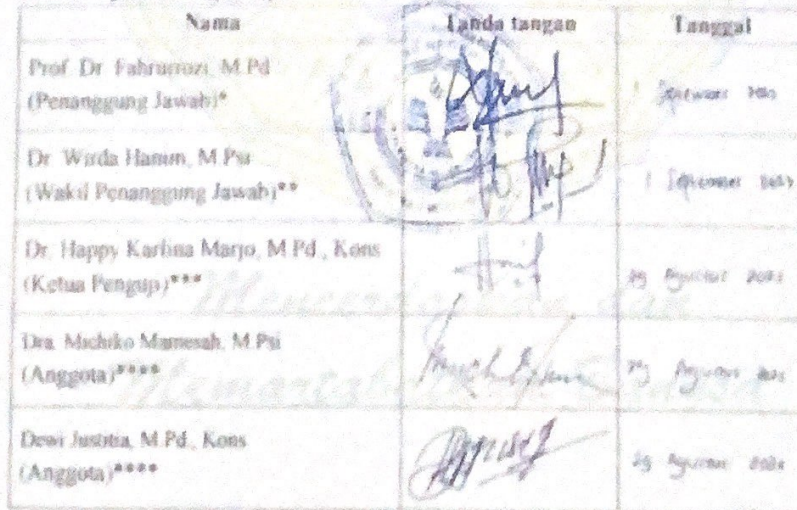 Nama Tanda tangan Tanggal
Prof. Dr. Fahrurrozi, M.Pd
(Penanggung Jawab)*
1 September
Dr. Wirda Hanim, M.Psi
(Wakil Penanggung Jawab)**
1 September
Dr. Happy Karlina Marjo, M.Pd., Kons
(Ketua Penguji)***
29 Agustus
Dra. Michiko Mamesah, M.Psi
(Anggota)****
29 Agustus
Dewi Justitia, M.Pd., Kons
(Anggota)****
29 Agustus
Mencerdaskan dan